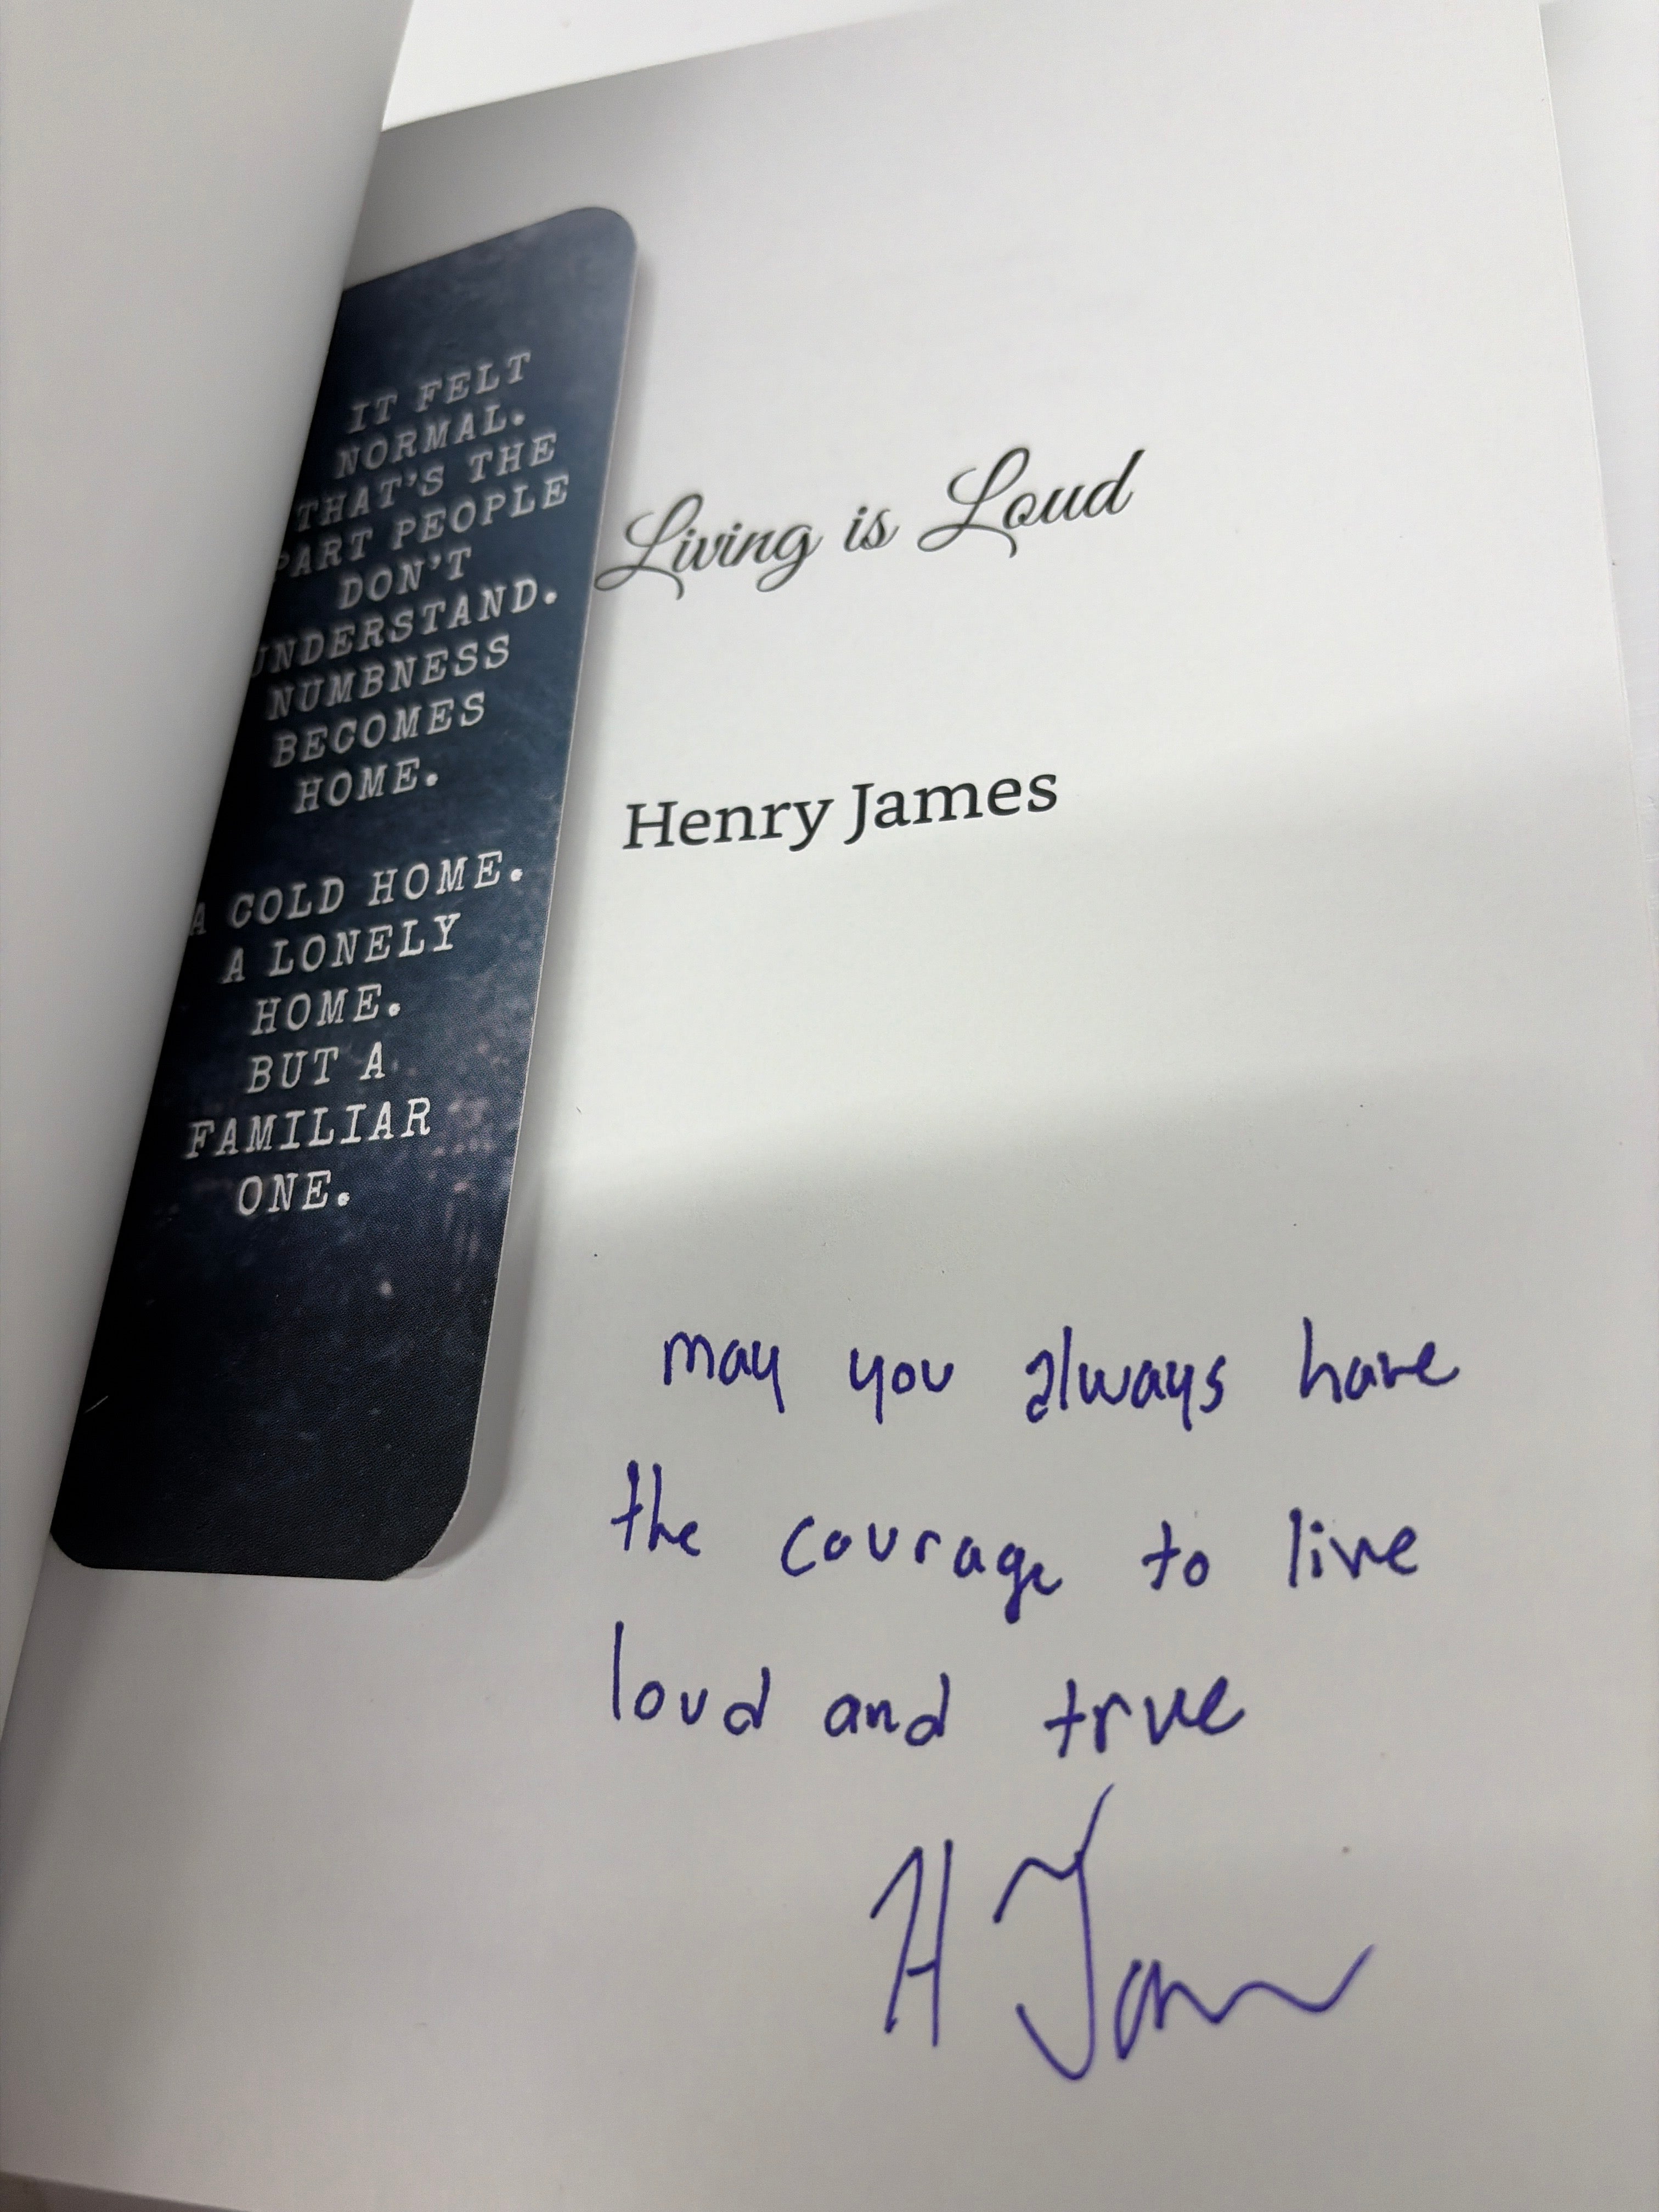 IT FELT
NORMAL.
THAT'S THE
PART PEOPLE
DON'T
UNDERSTAND.
NUMBNESS
BECOMES
HOME.
A COLD HOME.
A LONELY
HOME.
BUT A
FAMILIAR
ONE.
Living is Loud
Henry James
may you always have
the courage to live
loud and true
H Jam